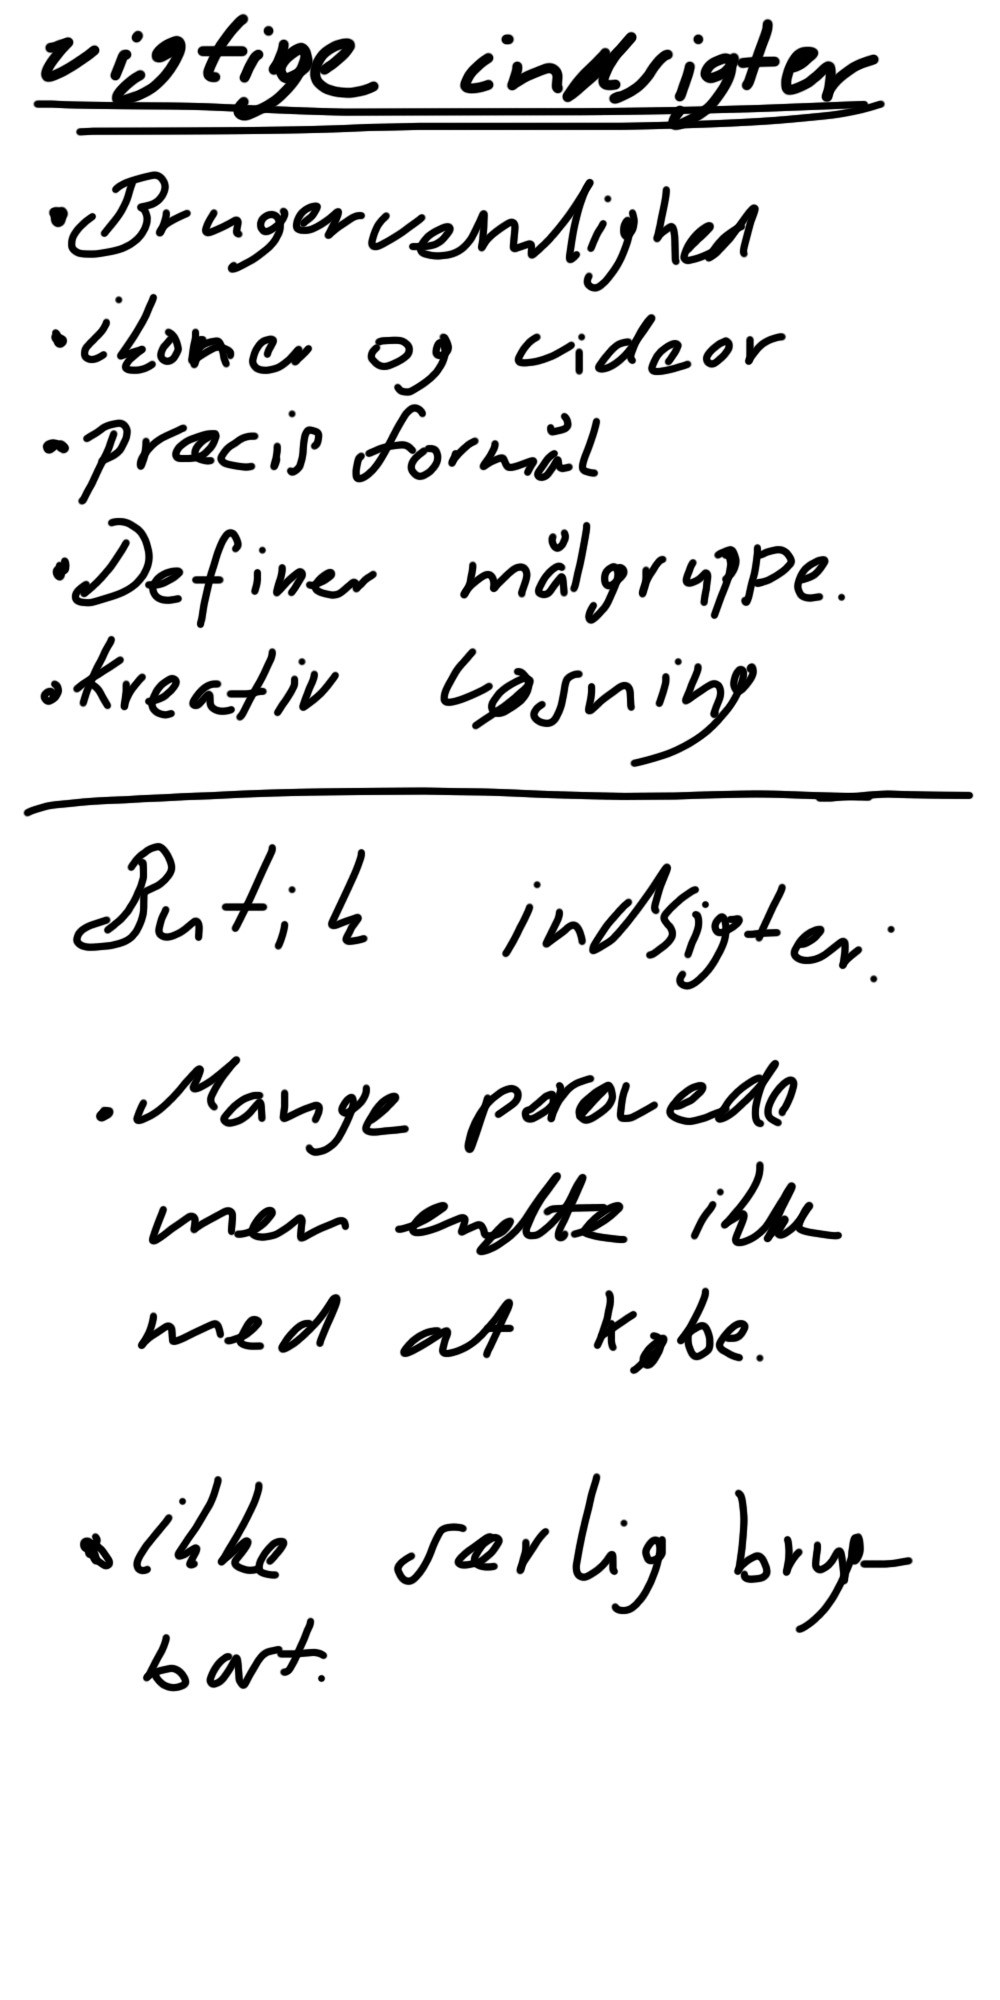 vigtige indsigter
• Brugervenlighed
• ikoner og videor
- præcis formål
• Definer målgruppe.
• kreativ Løsning
Butik indsigter:
• Mange prøvede
men endte ikke
med at købe.
• ikke særlig brug-
bart.